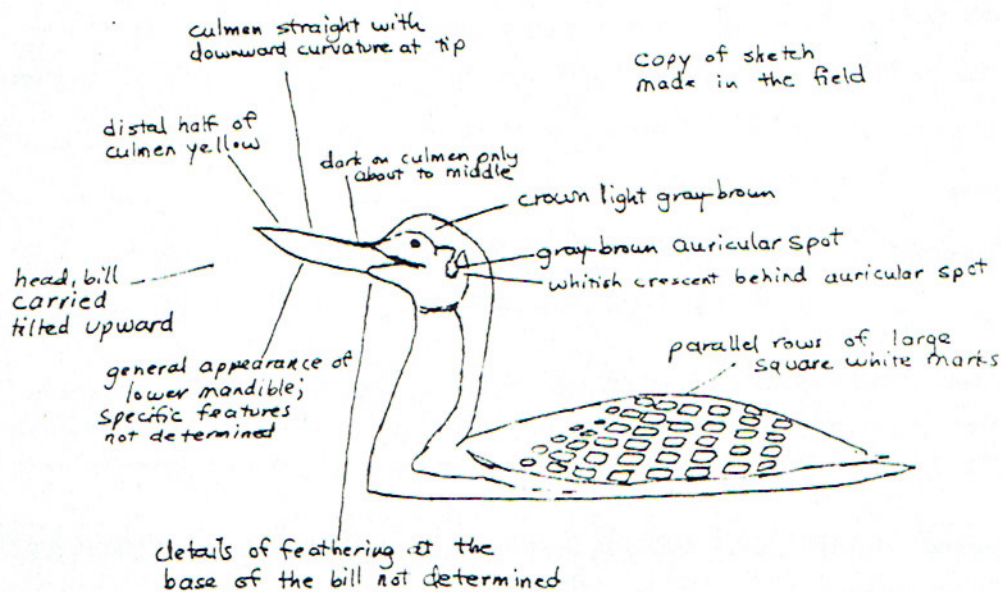 culmen straight with
downward curvature at tip
copy of sketch
made in the field
distal half of
culmen yellow
dark on culmen only
about to middle
crown light gray-brown
gray-brown auricular spot
whitish crescent behind auricular spot
head, bill
carried
tilted upward
parallel rows of large
square white marks
general appearance of
lower mandible;
specific features
not determined
details of feathering at the
base of the bill not determined